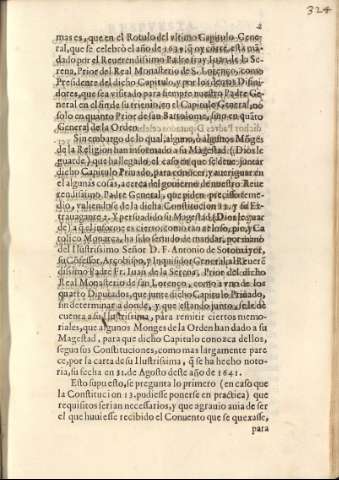 324
2
mas es, que en el Rotulo del vltimo Capitulo Gene-
ral, que se celebrò el año de 1639. q̃ oy corre, està mã-
dado por el Reuerendissimo Padre fray Iuan de la Se-
rena, Prior del Real Monasterio de S. Lorenço, como
Presidente del dicho Capitulo, y por los demas Difini-
dores, que sea visitado para siempre nuestro Padre Ge-
neral en el fin de su trienio, en el Capitulo General, no
solo en quanto Prior de san Bartolome, sino en quãto
General de la Orden.
Sin embargo de lo qual, alguno, ò algunos Mõges
de la Religion han informado a su Magestad (Dios le
guarde) que ha llegado el caso en que se deue juntar
dicho Capitulo Priuado, para conocer, y aueriguar en
el algunas cosas, acerca del gouierno de nuestro Reue
rendissimo Padre General, que piden preciso reme-
dio, valiendose de la dicha Constitucion 13. y su Ex-
trauagante 2. Y persuadido su Magestad (Dios le guar
de) a q̃ el informe es cierto, como tan zeloso, pio, y Ca
tolico Monarca, ha sido seruido de mandar, por mano
del Ilustrissimo Señor D. F. Antonio de Sotomayor,
su Cõfessor, Arçobispo, y Inquisidor General, al Reuerẽ
dissimo Padre Fr. Iuan de la Serena, Prior del dicho
Real Monasterio de san Lorenço, como a vno de los
quatro Diputados, que junte dicho Capitulo Priuado,
sin determinar a donde, y que estando junto, se le dè
cuenta a su Ilustrissima, para remitir ciertos memo-
riales, que algunos Monges de la Orden han dado a su
Magestad, para que dicho Capitulo conozca dellos,
segun sus Constituciones, como mas largamente pare
ce, por la carta de su Ilustrissima, q̃ se ha hecho noto-
ria, su fecha en 31. de Agosto deste año de 1641.
Esto supuesto, se pregunta lo primero (en caso que
la Constitucion 13. pudiesse ponerse en practica) que
requisitos serian necessarios, y que agrauio auia de ser
el que huuiesse recibido el Conuento que se quexasse,
para